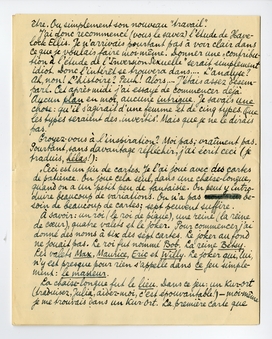 être. Ou simplement son nouveau "travail".
J'ai donc recommencé (vous le savez) l'étude de Have-
lock Ellis. Je n'arrivais pourtant pas à voir clair dans
ce que je voulais faire moi-même. Donner une contribu-
tion à l'étude de l'Inversion Sexuelle serait simplement
idiot. Donc l'intérêt se trouvera dans... L'analyse?
Ah, non! L'histoire? Peuh! Alors — J'étais assez désem-
paré. Cet après-midi j'ai essayé de commencer déjà.
Aucun plan en moi, aucune intrigue. Je savais une
chose: qu'il s'agirait d'une jeune et de cinq types que
les types seraient des invertis. Mais que je ne le dirais
pas.
Croyez-vous à l'inspiration? Moi pas, vraiment pas.
Pourtant, sans davantage réfléchir, j'ai écrit ceci (je
traduis, hélas!):
"Ceci est un jeu de cartes. Je l'ai joué avec des cartes
de patience. On joue cela seul, dans une chaise-longue,
quand on a un petit peu de fantaisie. On peut y intro-
duire beaucoup de variations. On n'a pas be-
soin de beaucoup de cartes; sept peuvent suffire.
A savoir: un roi (le roi de pique), une reine (la reine
de cœur), quatre valets et le joker. Pour commencer, j'ai
donné des noms à six des sept cartes. Le joker au fond
ne jouait pas. Le roi fut nommé Bob. La reine Betsy.
Les valets Max, Maurice, Eric et Willy. Le joker, qui
n'y est presque pour rien s'appelle dans ce jeu simple-
ment: le masseur.
La chaise-longue fut le lieu. Dans ce jeu: un Kur-ort
(traduisez, Julia, aidez-moi, c'est épouvantable!) — moi-même
je me trouvais dans un Kur-ort. La première carte que